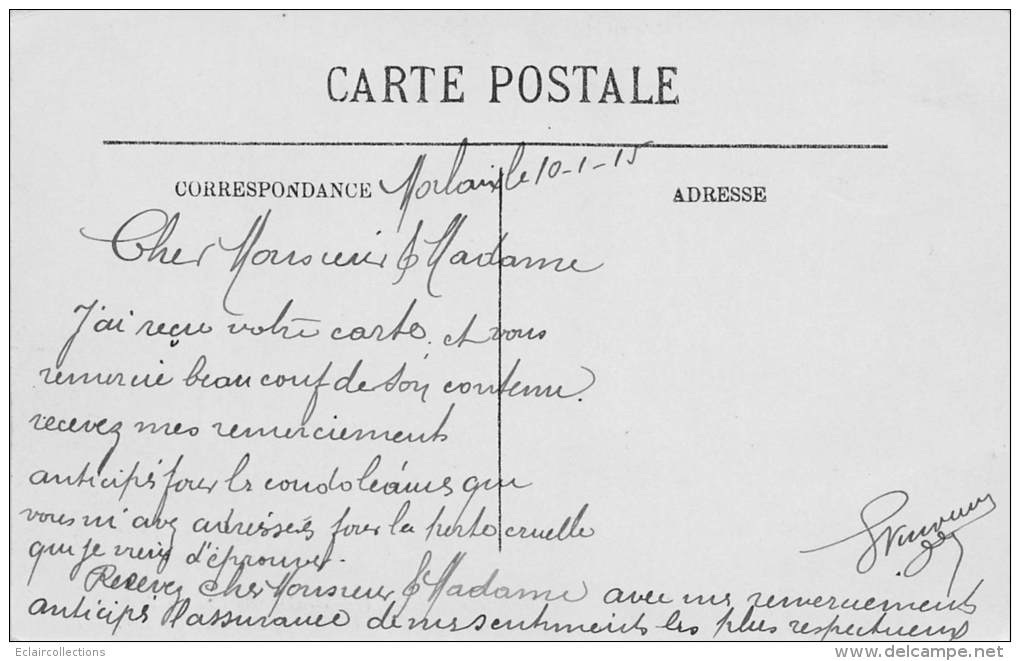 CARTE POSTALE
CORRESPONDANCE Morlaix le 10-1-15
ADRESSE
Cher Monsieur & Madame
J'ai reçu votre carte. et vous
remercie beaucoup de son contenu.
recevez mes remerciements
anticipés pour les condoléances que
vous m'avez adressés pour la perte cruelle
que je viens d'éprouver.
Recevez Cher Monsieur & Madame avec mes remerciements
anticipés l'assurance de mes sentiments les plus respectueux
Eclaircollections